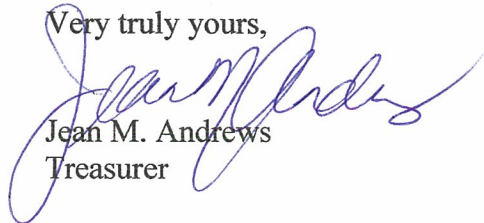 Very truly yours,
Jean M Andrews
Jean M. Andrews
Treasurer